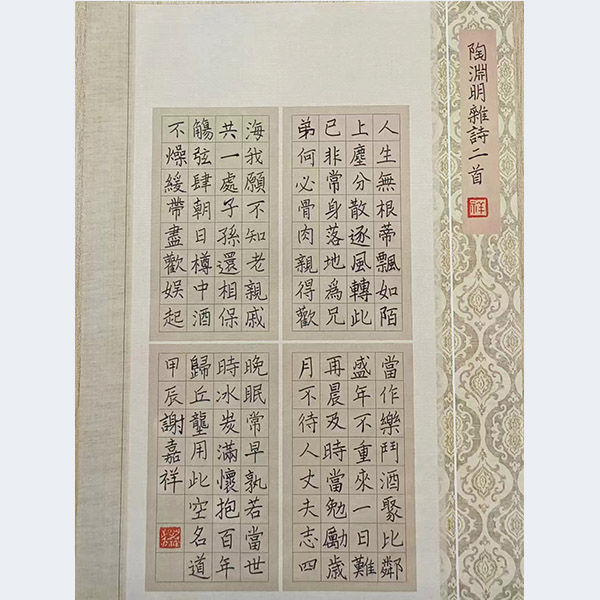 陶淵明雜詩二首
祥
人生無根蒂飄如陌
上塵分散逐風轉此
已非常身落地爲兄
弟何必骨肉親得歡
當作樂鬥酒聚比鄰
盛年不重來一日難
再晨及時當勉勵歲
月不待人丈夫志四
海我願不知老親戚
共一處子孫還相保
觴弦肆朝日樽中酒
不燥緩帶盡歡娛起
晚眠常早孰若當世
時冰炭滿懷抱百年
歸丘壟用此空名道
甲辰謝嘉祥